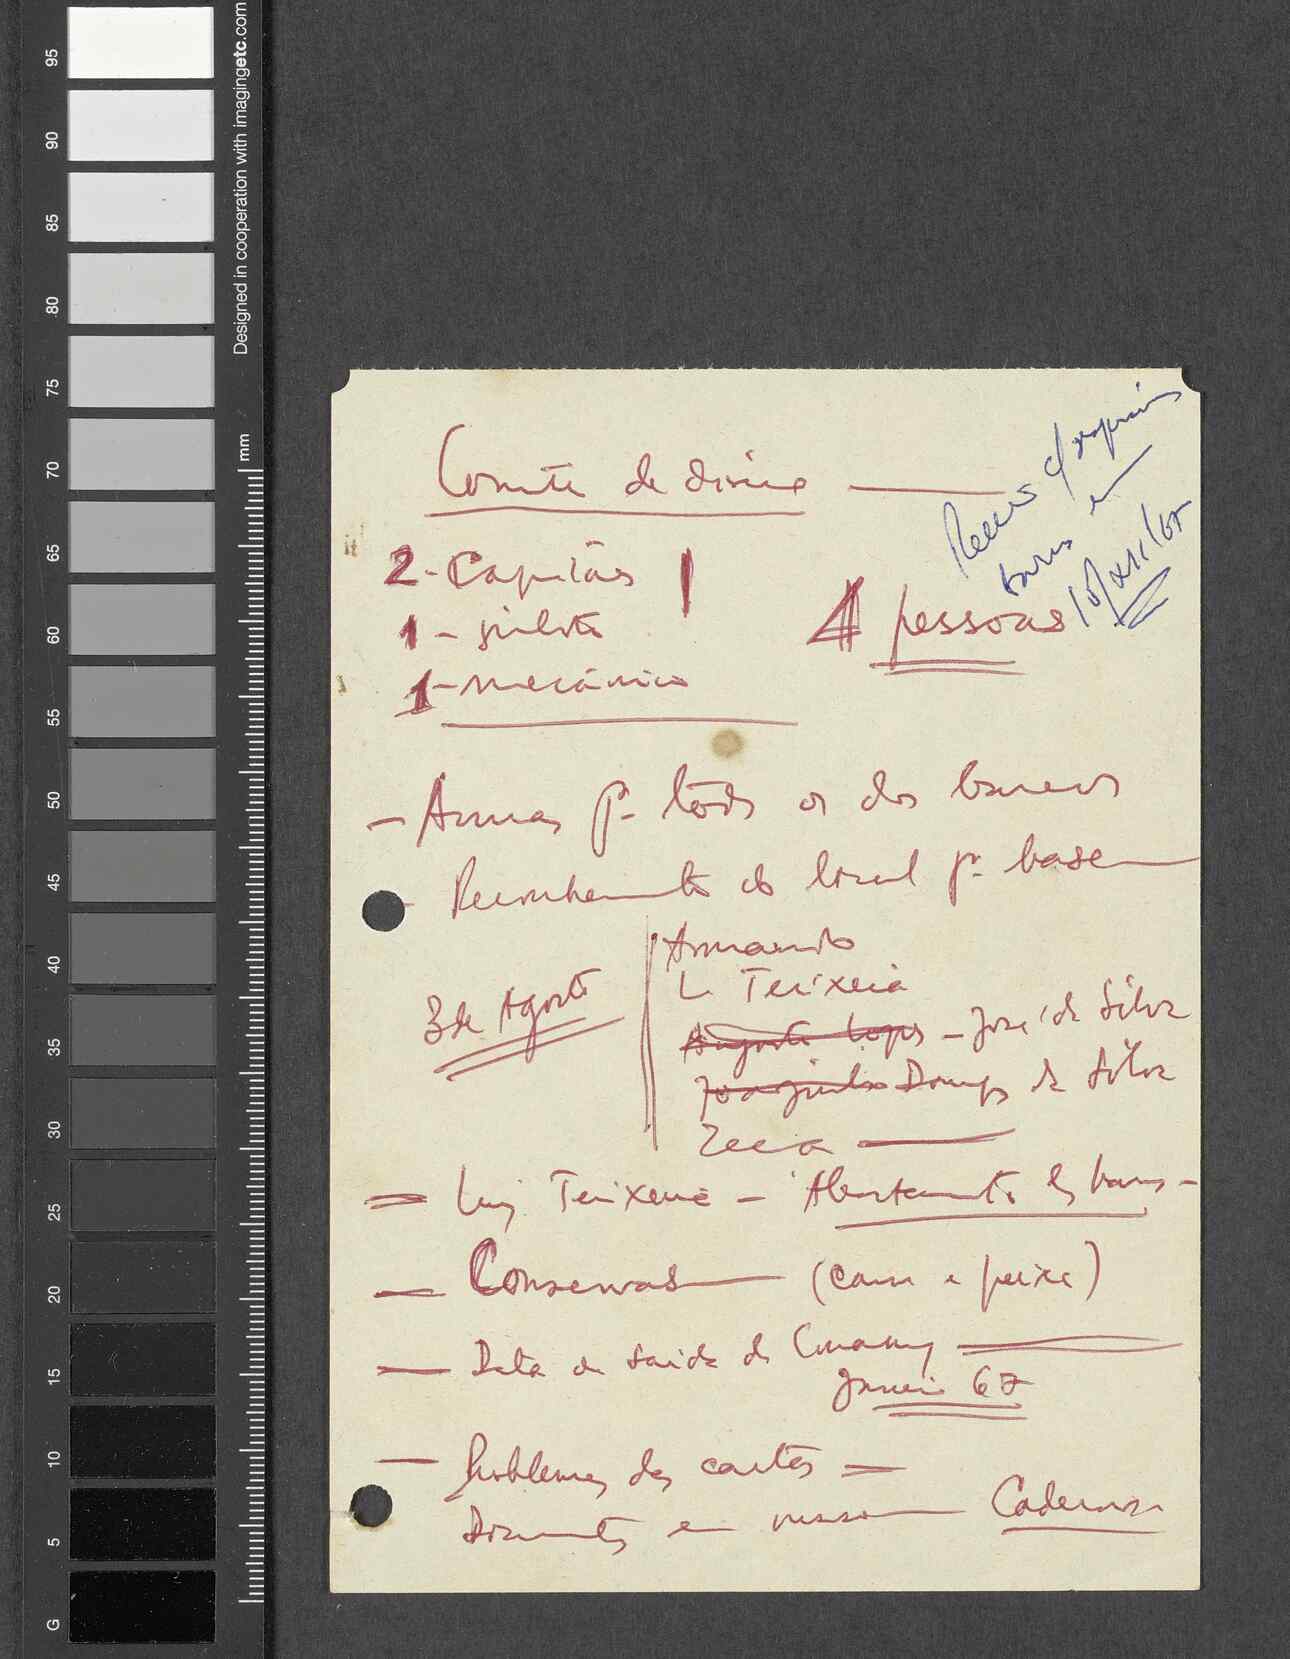 Designed in cooperation with imagingetc.com
mm
95
90
85
80
75
70
65
60
55
50
45
40
35
30
25
20
15
10
5
G
Comité de
2 - Capitães
1 - piloto
1 - mecânico
4 pessoas
10/XII/67
- Armas p.ª todos os dos barcos
Reconhecimento do local p.ª base
3 de Agosto
Armando
L. Teixeira
Augusto Lopes - José da Silva
Joaquim Domgs da Silva
Zeca
= Luiz Teixeira - Abastecimento
- Conservas (carne e peixe)
- Data de saída de Conakry
Janeiro 67
- Problemas das cartas
Documentos em russo Cadernos